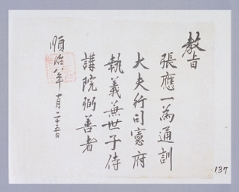 教旨
張應一爲通訓
大夫行司憲府
執義兼世子侍
講院弼善者
順治八年十月二十五日
137